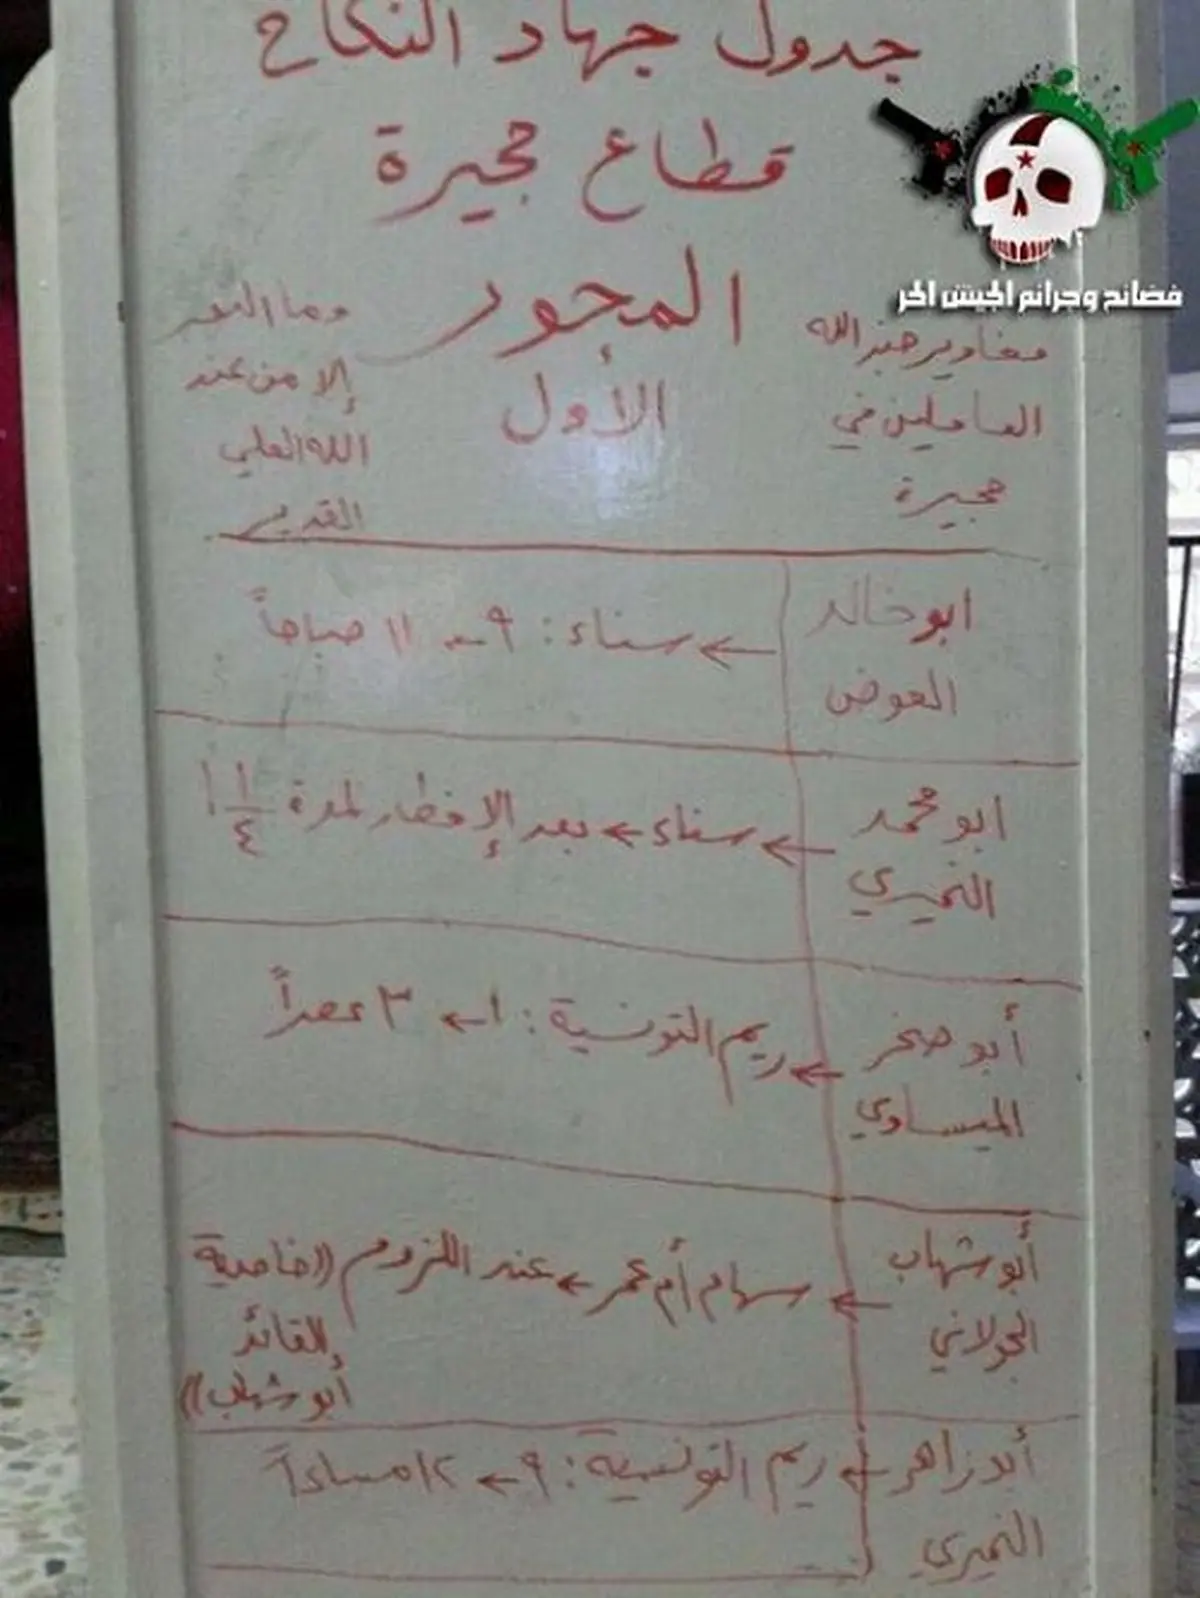 جدول جهاد النكاح
قطاع حجيرة
المحور
الأول
فضائح وجرائم الجيش الحر
مغاوير جند الله
العاملين في
حجيرة
وما النصر
إلا من عند
الله العلي
القدير
ابو خالد
العوض
← سناء : ٩ ← ١١ صباحاً
ابو محمد
النميري
← سناء ← بعد الإفطار لمدة ١/٤ ١
أبو صخر
الميساوي
← ريم التونسية : ١ ← ٣ عصراً
أبو شهاب
الجولاني
← سهام أم عمر ← عند اللزوم ((خاصية
للقائد
أبو شهاب))
أبو زاهر
النميري
← ريم التونسية : ٩ ← ١٢ مساءاً